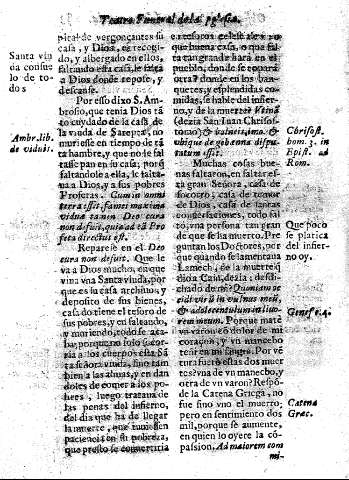 Teatro Funeral de la Yglesia.
Santa viu
da consue
lo de to-
dos
Ambr. lib.
de viduis.
pical de vergonçantes su
casa, y Dios, era recogi-
do, y albergado en ellos,
faltando esta casa, le falta
a Dios donde repose, y
descanse.
Por esso dixo S. Am-
brosio, que tenia Dios tã
to cuydado de la casa de
la viuda de Sarepta, no
muriesse en tiempo de tã
ta hambre, y que no le fal
tasse pan en su casa; porq̃
faltandole a ella, le falta-
ua a Dios, y a sus pobres
Profetas. Cum in omni
terra esset, fames maxima
viduæ tamen Deo cura
non defuit, quia ad eã Pro
feta directus est.
Reparese en el Deo
cura non defuit. Que le
va a Dios mucho, en que
viua vna Santa viuda, por
que es su casa archiuo, y
deposito de sus bienes,
casa do tiene el tesoro de
sus pobres, y en faltando,
y muriendo, todo se aca-
ba; porque no solo socor-
ria a los cuerpos esta Sã
ta señora viuda, sino tam
bien a las almas, y en dan
doles de comer a los po-
bres, luego trataua de
las penas del infierno,
del dia que ha de llegar
la muerte, que tuuiessen
paciencia en su pobreza,
que presto se conuertiria
que buena casa, o que fal
ta tan grande hará en el
pueblo, donde se repara
otra tal? donde en los ban
quetes, y esplendidas co
midas, se hable del infier-
no, y de la muerte?
(dezia San Iuan Chrisos-
tomo) & balneis, imo, &
vbique de gehenna dispu-
tatum esset.
Muchas cosas bue-
nas faltaron, en faltar es-
ta gran Señora, casa de
socorro; casa de temor
de Dios, casa de santas
conuersaciones, todo fal-
tó, vna persona tan gran
de que se ha muerto. Pre
guntan los Doctores, por
que quando se lamentaua
Lamech, de la muerte q̃
dio a Cain, dezia: o des-
dichado de mi? Quoniam oc
cidi virũ in vulnus meũ,
& adolescentulum in liuo-
rem meum. Porque maté
vn varon cõ dolor de mi
coraçon, y vn mancebo
teñi en mi sangre. Por vẽ
tura fuerõ estas dos muer
tes? vna de vn mancebo, y
otra de vn varon? Respõ-
de la Catena Griega, no
fue sino vno el muerto;
pero en sentimiento dos
mil, porque se aumente,
en quien lo oyere la cõ-
passion. Ad maiorem com
mi-
Chrisost.
hom. 3. in
Epist. ad
Rom.
Que poco
se platica
del infier-
no oy.
Genes. 4.
Catena
Græc.